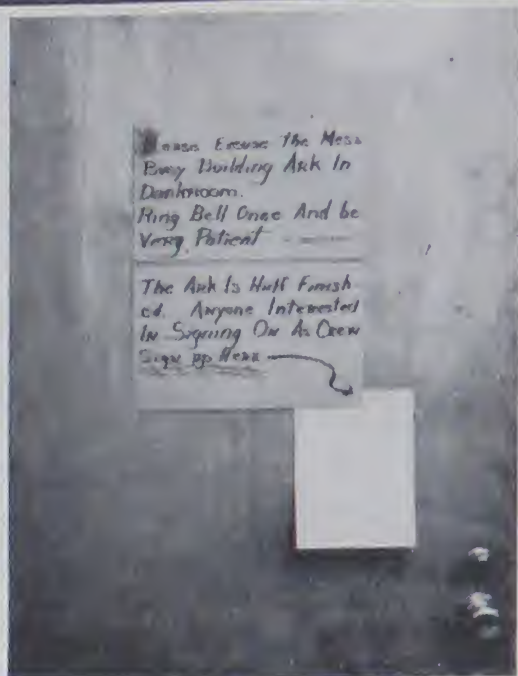 Please Excuse The Mess
Busy Building Ark In
Darkroom.
Ring Bell Once And be
Very Patient
The Ark Is Half Finish
ed. Anyone Interested
In Signing On As Crew
Sign up Here